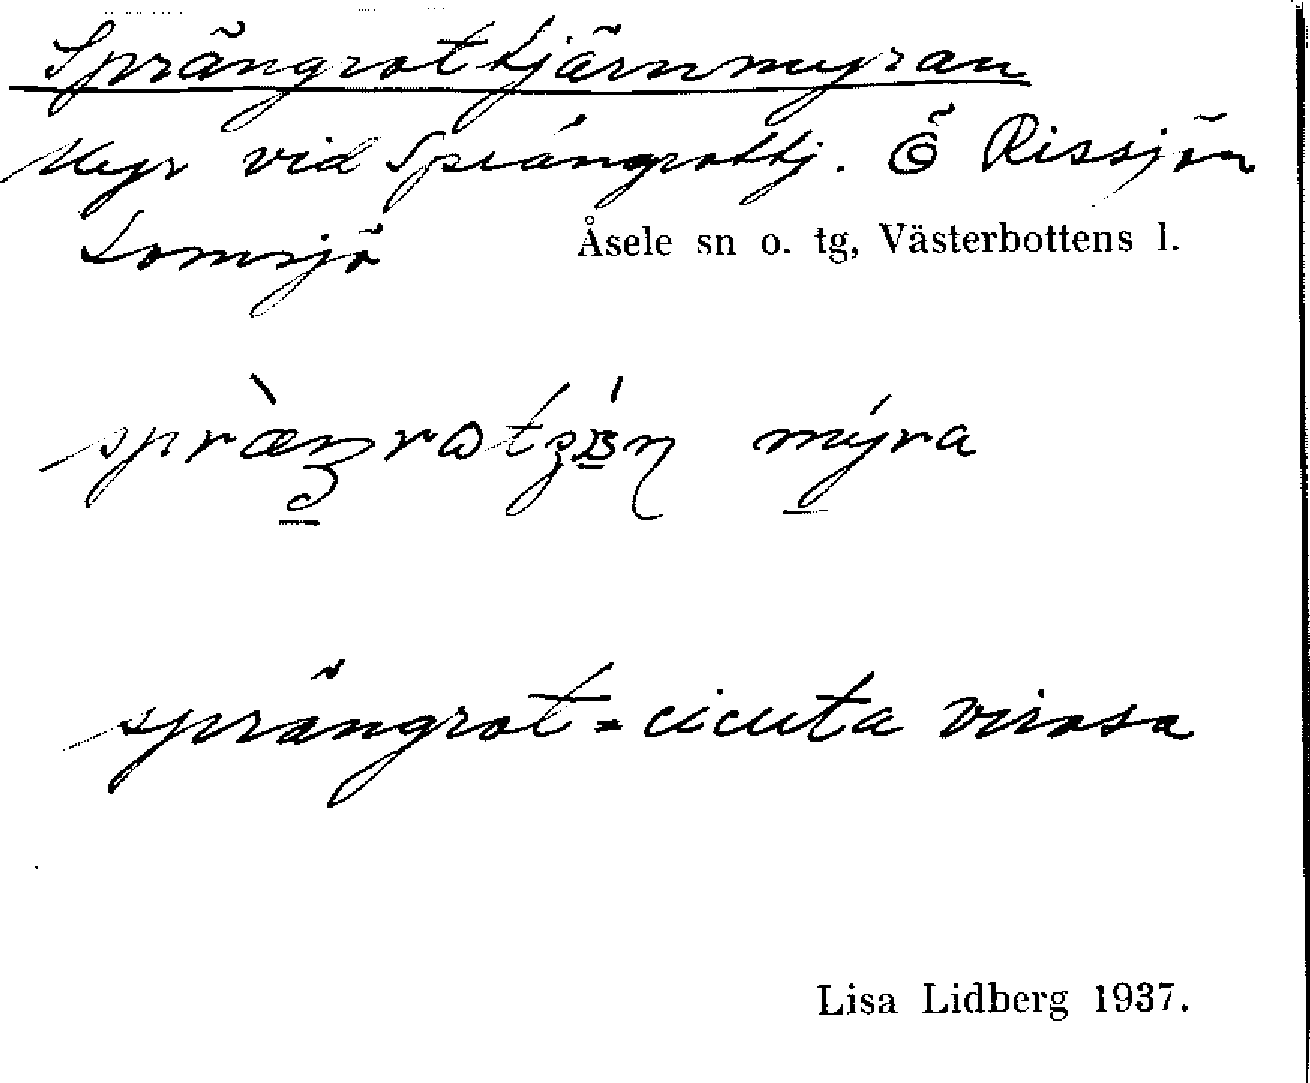 Sprängrottjärnmyran
Myr vid Sprängrottj. Ö Rissjön
Lomsjö Åsele sn o. tg, Västerbottens l.
mýra
sprängrot = cicuta virosa
Lisa Lidberg 1937.